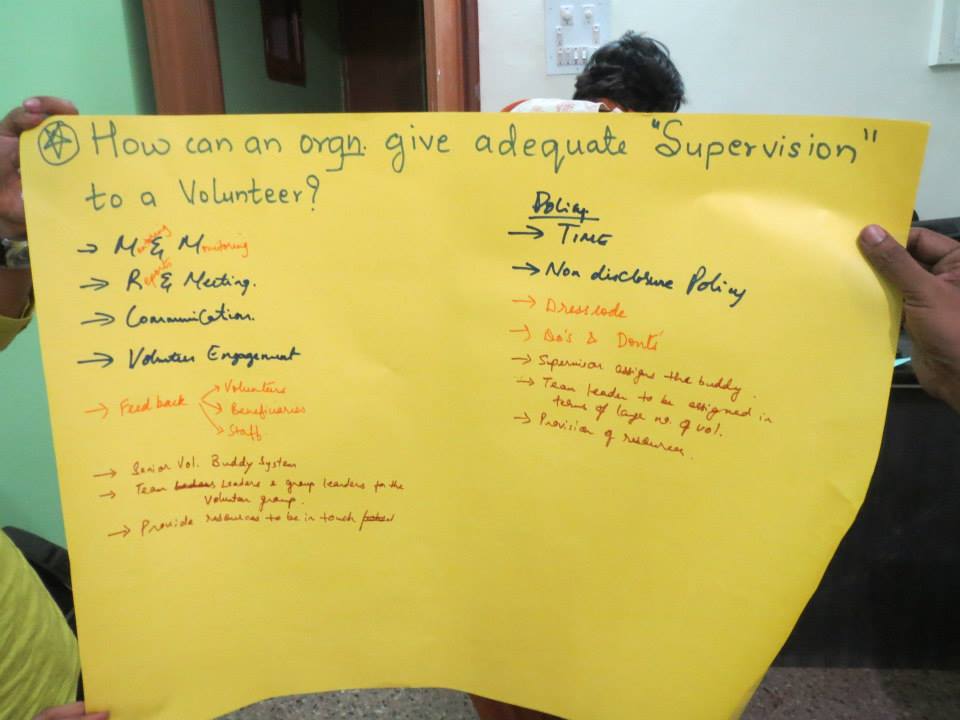 How can an orgn. give adequate "Supervision"
to a Volunteer?
→ Mentoring & Monitoring
→ Reports & Meeting.
→ Communication.
→ Volunteer Engagement
→ Feedback → Volunteers
→ Beneficiaries
→ Staff.
→ Senior Vol. Buddy System
→ Team Leaders & group leaders for the
Volunteer group.
→ Provide resources to be in touch
Policy
→ TIME
→ Non disclosure Policy
→ Dresscode
→ Do's & Dont's
→ Supervisor assigns the buddy.
→ Team leader to be assigned in
terms of large no. of vol.
→ Provision of resources.